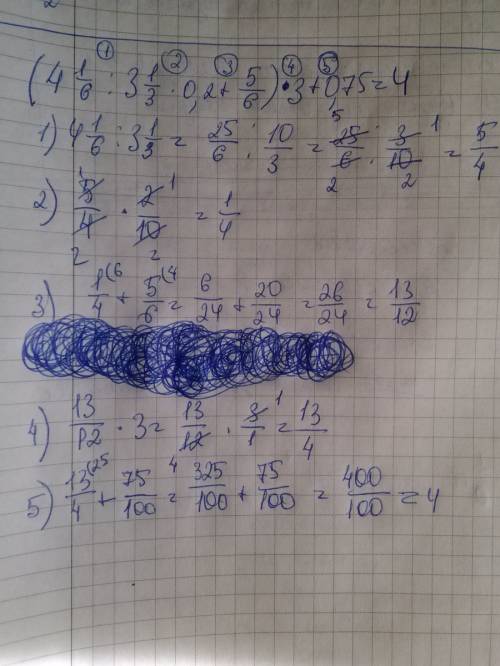 ① ② ③ ④ ⑤
(4 1/6 : 3 1/3 · 0,2 + 5/6) · 3 + 0,75 = 4
1) 4 1/6 : 3 1/3 = 25/6 : 10/3 = 5 25/6 2 : 3 1/10 2 = 5/4
2) 1 5/4 2 · 2 1/10 2 = 1/4
3) 1/4 (6 + 5/6 (4 = 6/24 + 20/24 = 26/24 = 13/12
4) 13/12 · 3 = 13/12 4 · 3 1/1 = 13/4
5) 13/4 (25 + 75/100 = 325/100 + 75/100 = 400/100 = 4